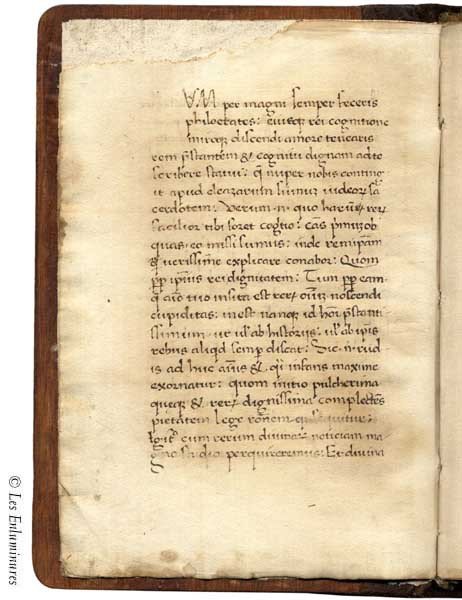 V M per magni semper feceris
philocrates: eiusque rei cognitione
miroque discendi amore tenearis
rem pstantem & cognitu dignam ad te
scribere statui: q nuper nobis conting
it apud eleazarum sumum iudeor sa
cerdotem: Verum .n. quo harum rer
facilior tibi foret cogtio: cas primuz ob
quas eo missi sumus: inde rem ipam
& verissime explicare conabor: Quom
pp ipsius rei dignitatem: Tum pp eam
q aio tuo insita est rer oium noscendi
cupiditas: inest nanque id hoi pstanti
ssimum ut uel ab historiis: uel ab ipis
rebus aliqd semp discat: Sic .n. rud
is ad huc aius & qi infans maxime
exornatur: quom initio pulcherima
queque & rer dignissima complectens
pietatem lege
Igit cum rerum divinar noticiam ma
gno studio perquireremus: Et divina
© Les Enluminures